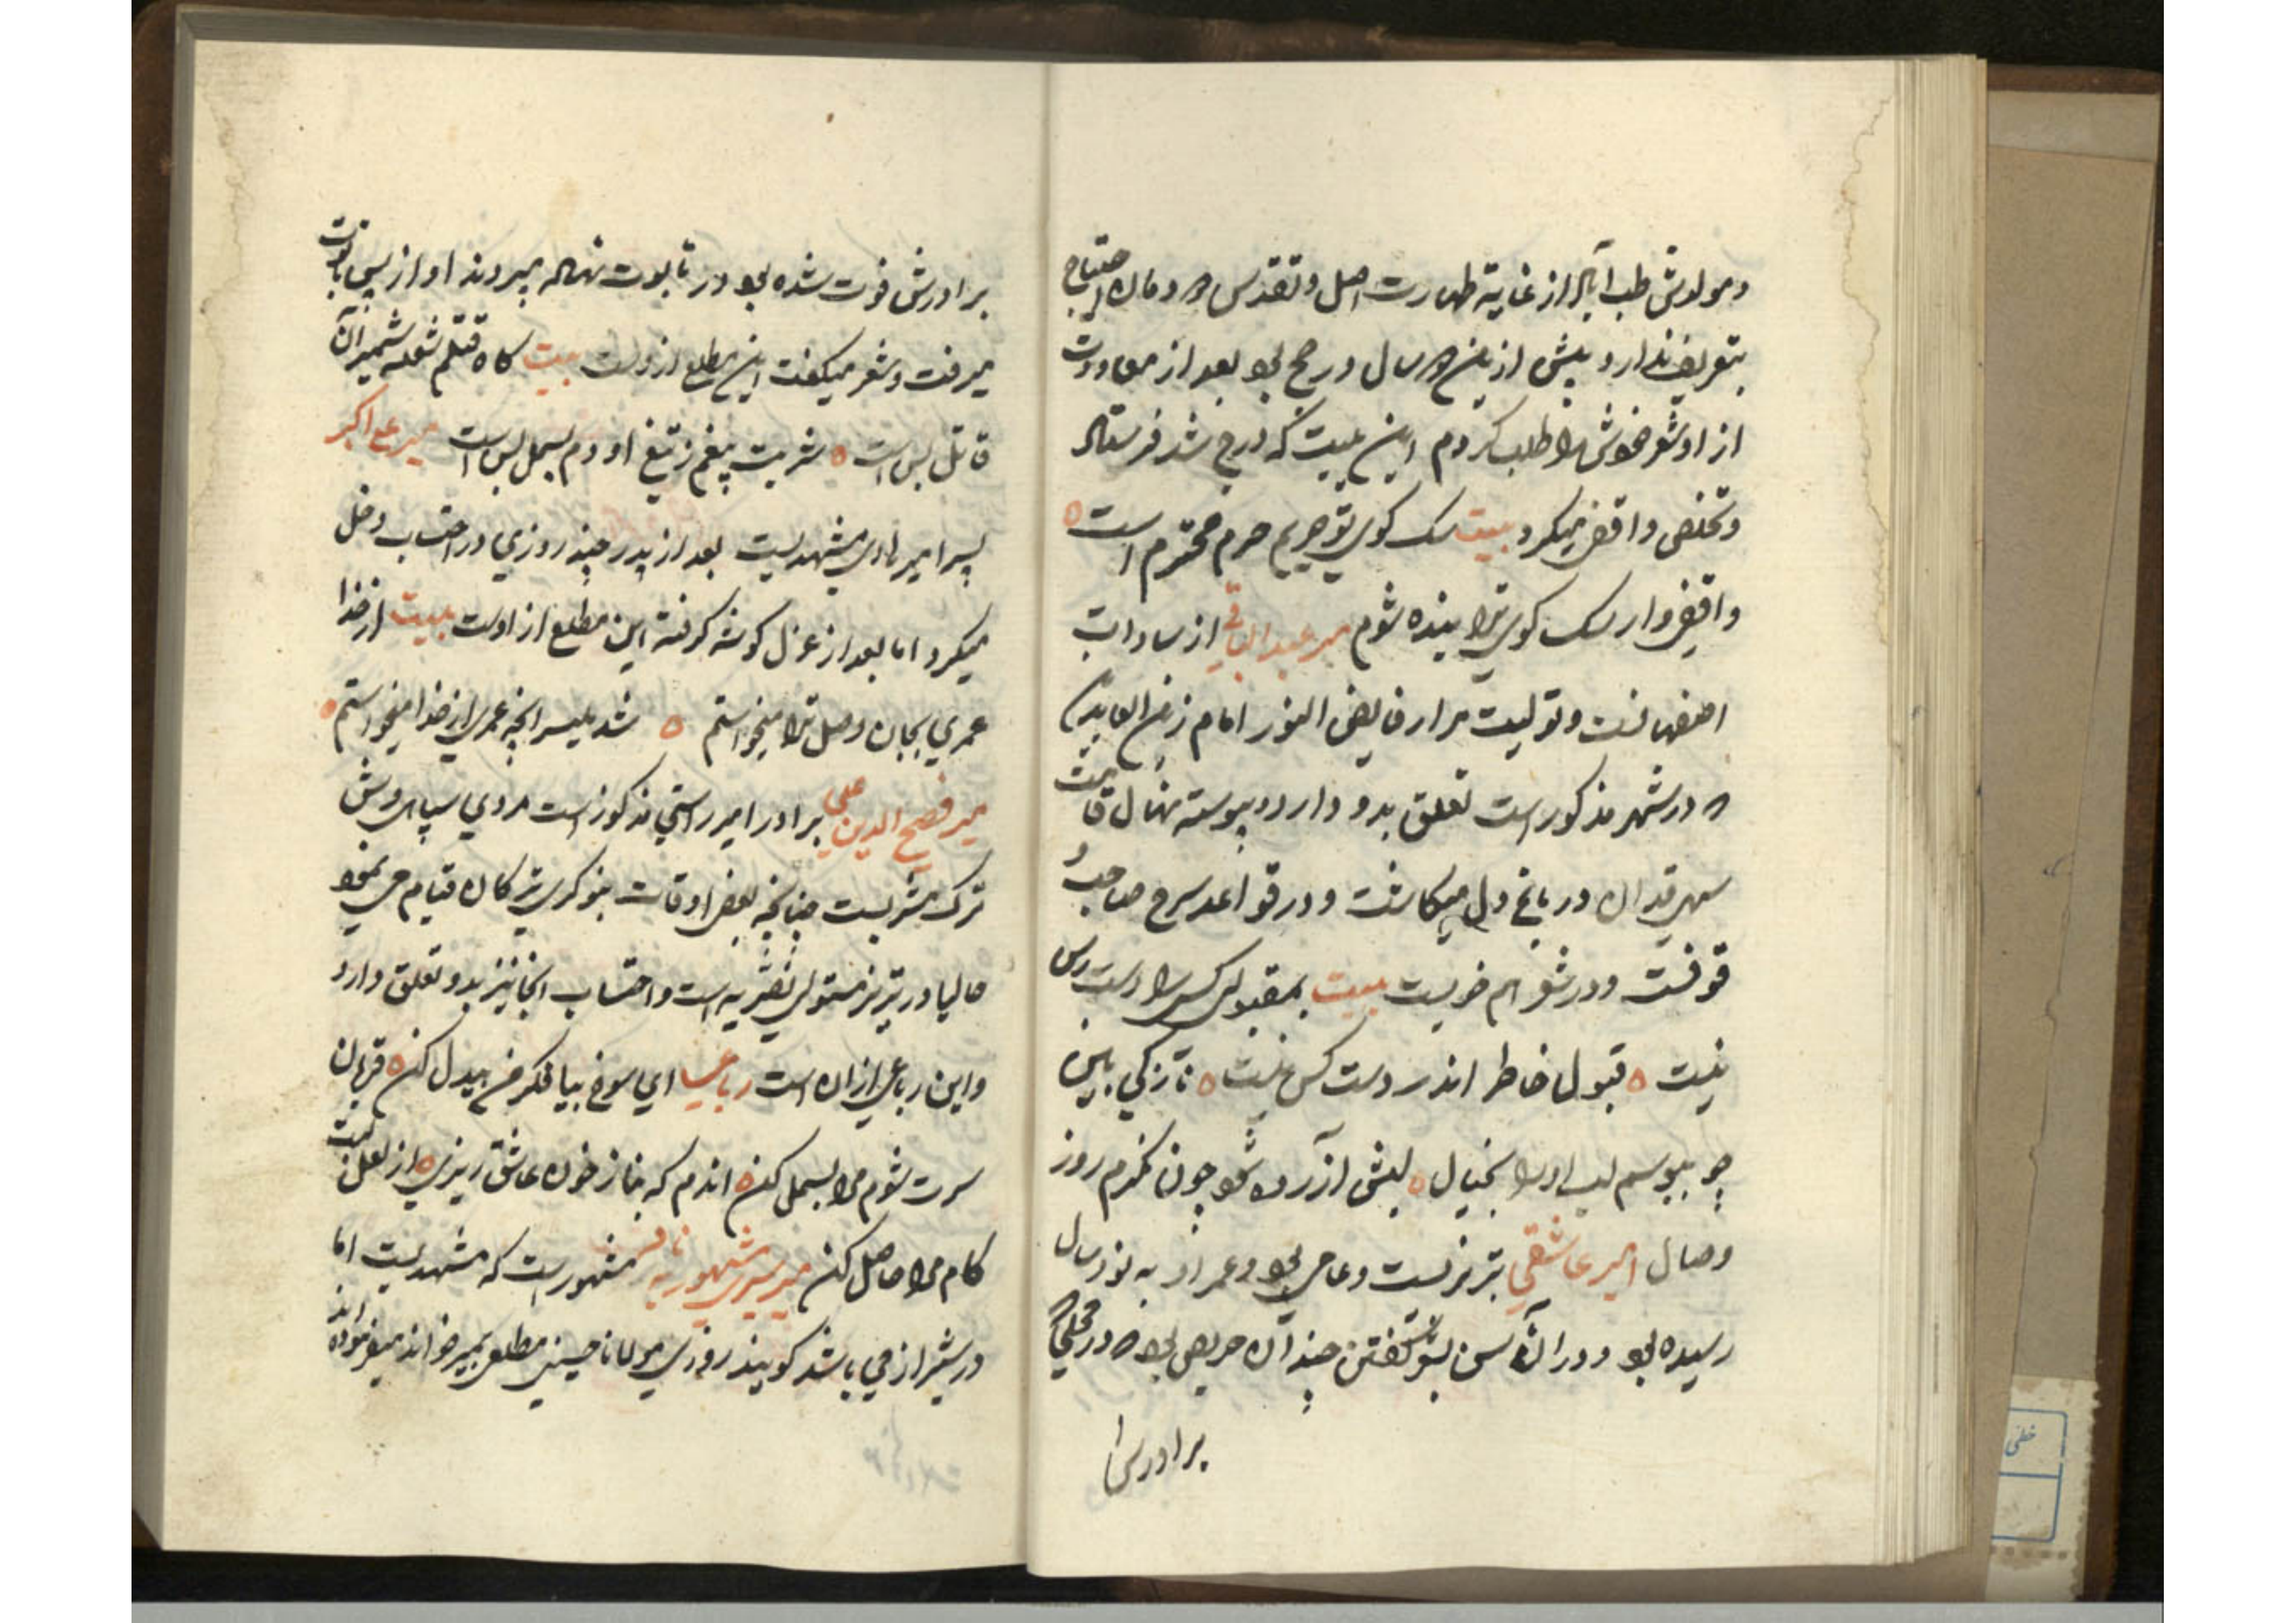 ومولدش طب آباد از غایة طهارت اصل و تقدس دودمان احتیاج
بتعریف ندارد پیش ازین دو سال در حج بود بعد از معاودت
از او شعر خوش را طلب کردم این بیت که درج شد فرستاد
وتخلص واقفی میکرد بیت سک کوی تو حریم حرم محترم است
واقفی وار سک کوی ترا بنده شوم میر عبدالباقی از سادات
اصفهانست و تولیت مزار فایض النور امام زین العابدین
که در شهر مذکور است تعلق بدو دارد و پیوسته نهال قامت
سهی قدان در باغ دل میکاشت و در قواعد سرح صاحب
قوفست و در شعر هم خوبست بیت بمقبولی کسی را دست رس
نیست قبول خاطر اندر دست کس نیست نازکی بین
چو ببوسم لب او را بخیال لبش آزرده شود چون نکرم روز
وصال امیر عاشقی تبریزیست و عامی بود و عمر او به نود سال
رسیده بود و در آن سن بشعر گفتن چندان حریص بود که در محلی که
برادرش
برادرش فوت شده بود در تابوت نهاده میبردند او از پس تابوت
میرفت و شعر میکفت این مطلع ازوست بیت کاه قتلم شعله شمشیر آن
قاتل بس است شربت پیغم ز تیغ او دم بسمل بس است میر علی اکبر
پسر امیر هادی مشهدیست بعد از پدر چند روزی در احتساب دخل
میکرد اما بعد از عزل کوشه کرفته این مطلع از اوست بیت از خدا
عمری بجان وصل ترا میخواستم شد میسر انچه عمری از خدا میخواستم
میر فصیح الدین علی برادر امیر راستی مذکور است مردی سپاهی وش
ترک مشربست چنانچه بعضی اوقات بنوکری ترکان قیام می نمود
حالیا در تبریز متولی نصریه است و احتساب انجا نیز بدو تعلق دارد
واین رباعی از ان است رباعیا ای سوخ بیا فکر من بیدل کن قربان
سرت شوم مرا بسمل کن اندم که بناز خون عاشق ریزی از لعل لبت
کام مرا حاصل کن میر سری مشهور به مشهور است که مشهدیست اما
در شیراز می باشد کویند روزی مولانا حسینی مطلعی بمیر خواند میر فرموده اند
خطی